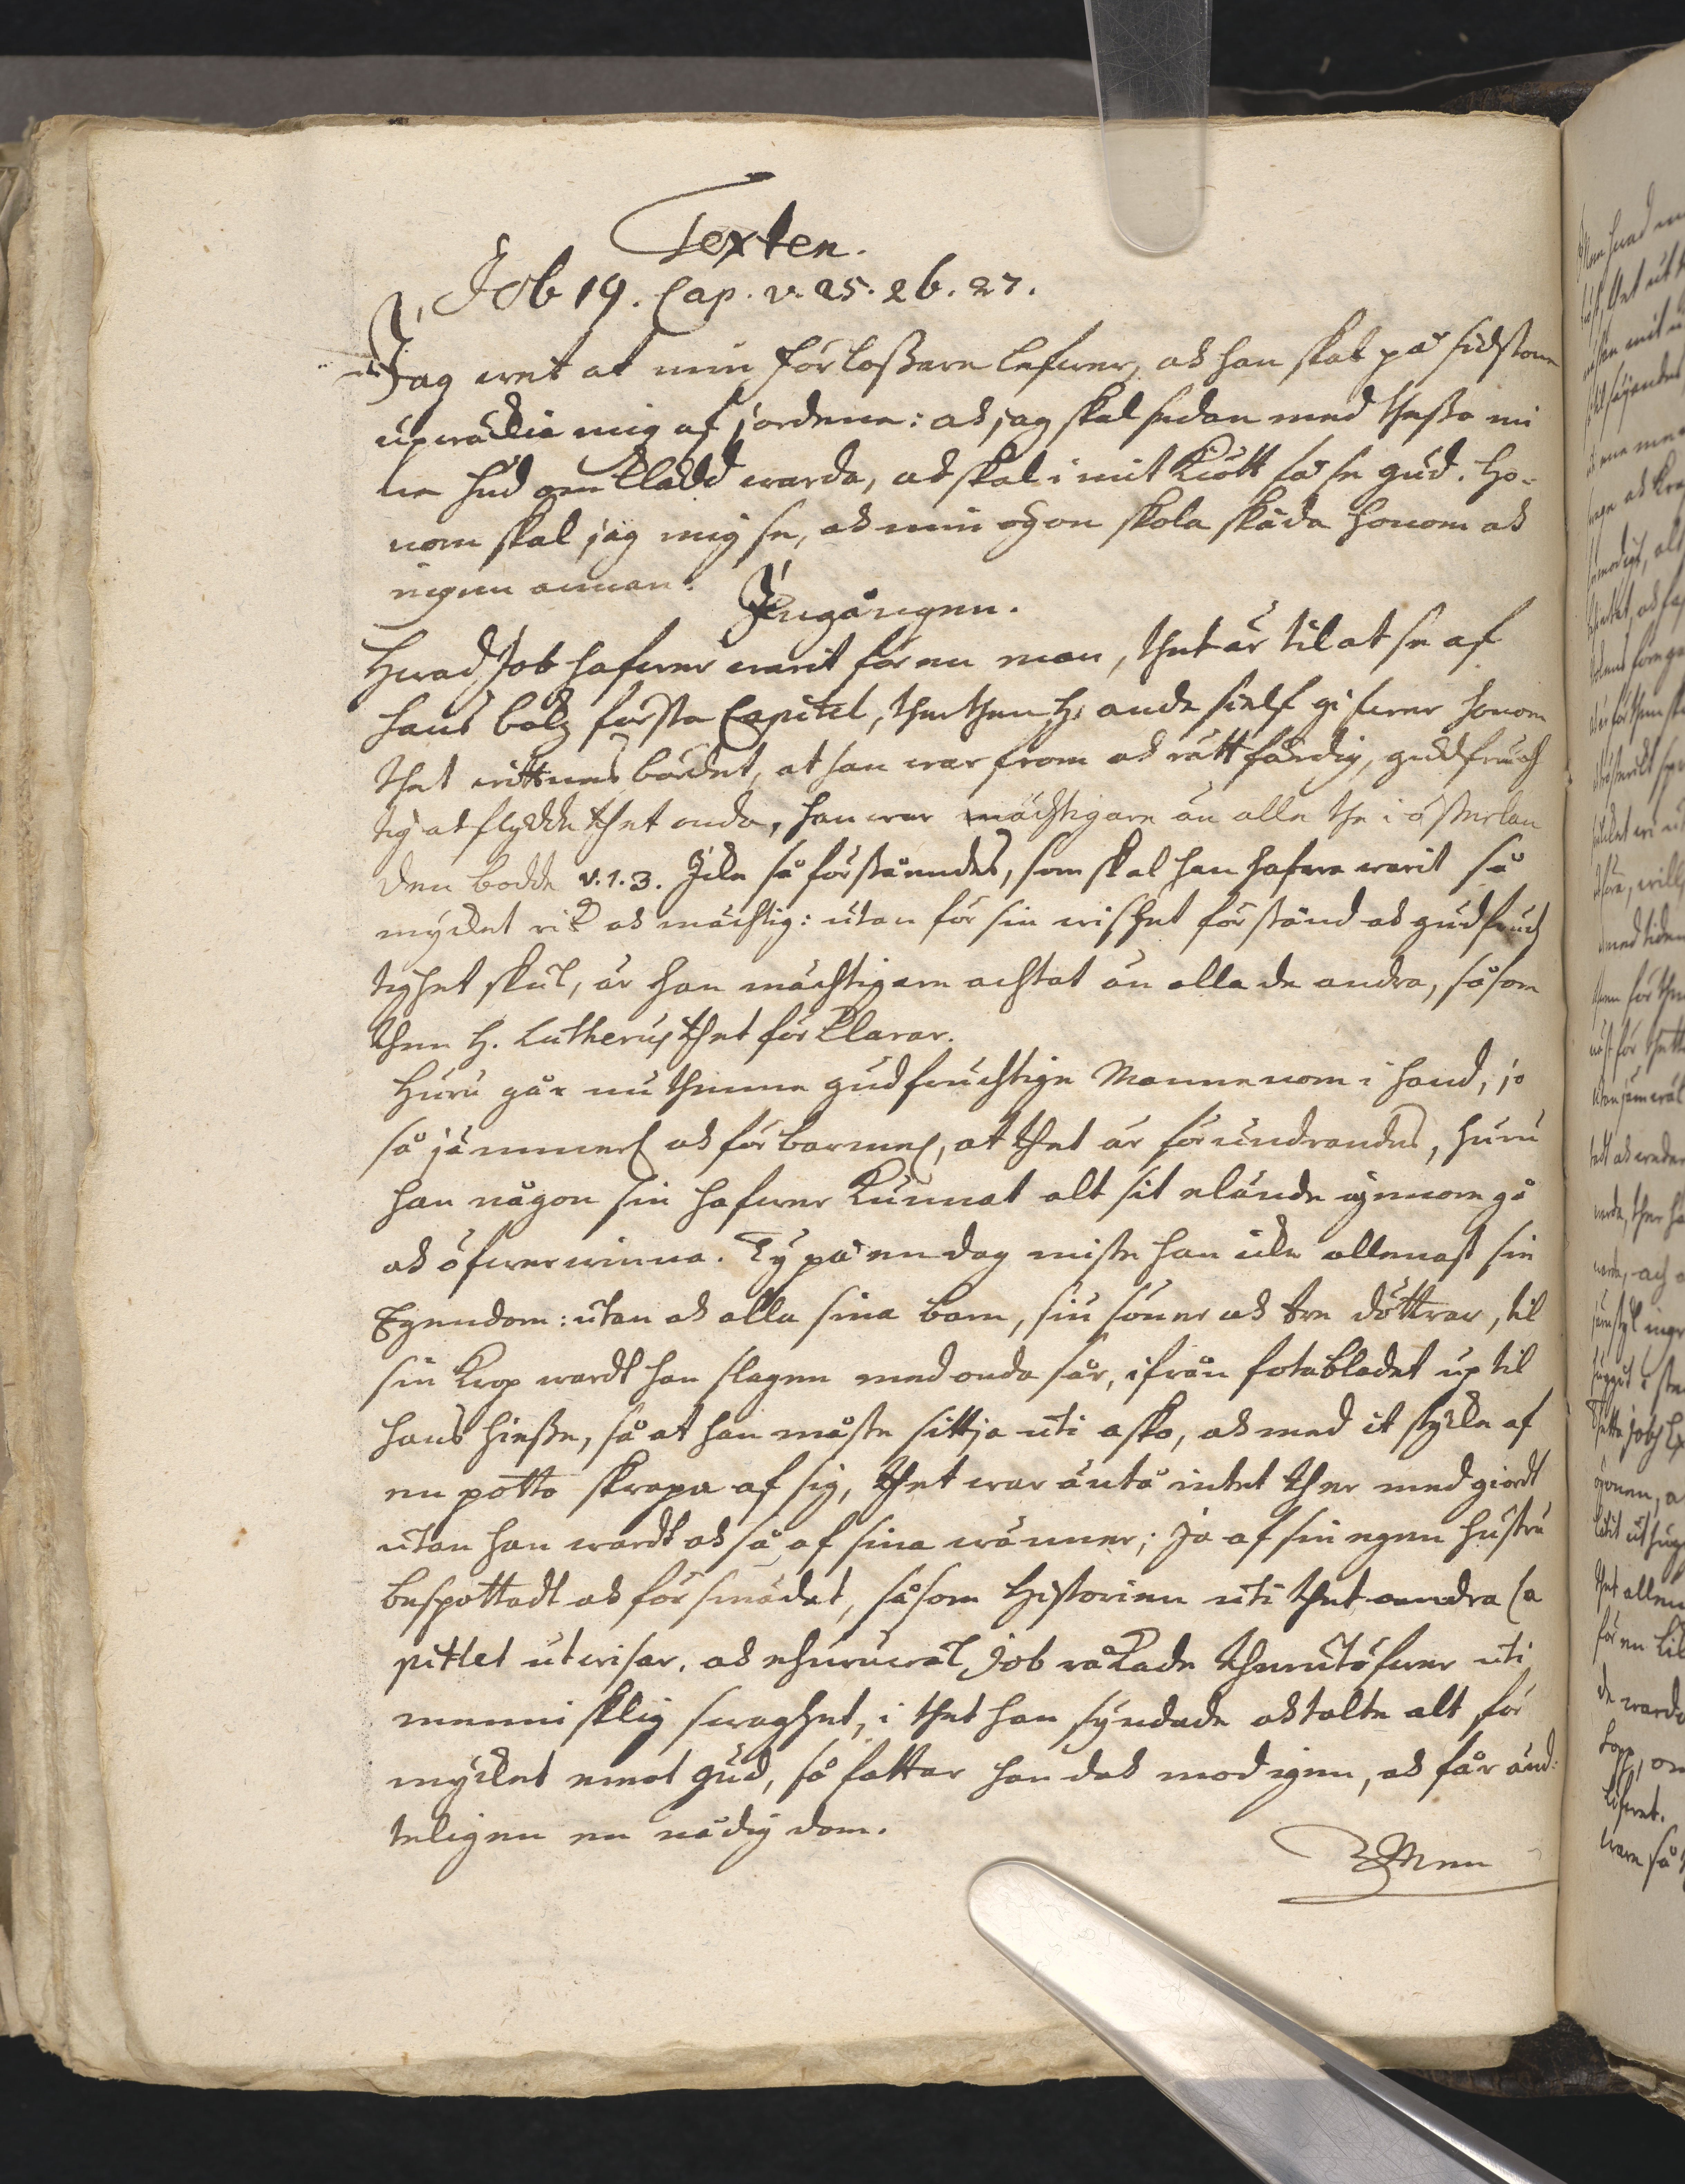 Texten.
Job 19. Cap. v. 25. 26. 27.
Jag wet at min förlossare lefwer, ok han skal på sidstone
upwäckia mig af jordenne: ok jag skal sedan med thesso mi
ne hud omklädd warda, ok skal i mit kiött få se gud. Ho-
nom skal jag mig se, ok min ögon skola skåda honom ok
ingen annan.
Ingången.
Hwad Job hafwer warit för en man, thet är til at se af
hans boks första Capitel, ther then H. ande sielf gifwer honom
thet wittnesbördet, at han war from ok rättfärdig, gudfruch
tig ok flydde thet onda, han war mächtigare än alle the i österlan
den bodde v. 1. 3. Icke så förståendes, som skal han hafwa warit så
mycket rik ok mächtig: utan för sin wishet förstånd ok gudfruch
tighet skul, är han mächtigare achtat än alla de andra, såsom
then H. Lutherus thet förklarar.
Huru går nu thenne gudfruchtige Mannenom i hand, jo
så jämmerl ok förbarmel, at thet är förundrandes, huru
han någon sin hafwer kunnat alt sit elände igenomgå
ok öfwerwinna. Ty på en dag miste han icke allenast sin
Egendom: utan ok alla sina barn, siu söner ok tre döttrar, til
sin krop wardt han slagen med onda sår, ifrån fotabladet up til
hans hiessa, så at han måste sittja uti asko, ok med it stycke af
en potto skrapa af sig, thet war ändå intet ther med giordt
utan han wardt ok så af sina wänner; ja af sin egen hustru
bespottadt ok försmädat, såsom Historien uti thet andra Ca
pittlet utwisar. ok ehuruwäl Job råkade therutöfwer uti
mennisklig swaghet, i thet han syndade ok talte alt för
mycket emot gud, så fattar han dok mod igen, ok får änd-
teligen en nådig dom.
Men